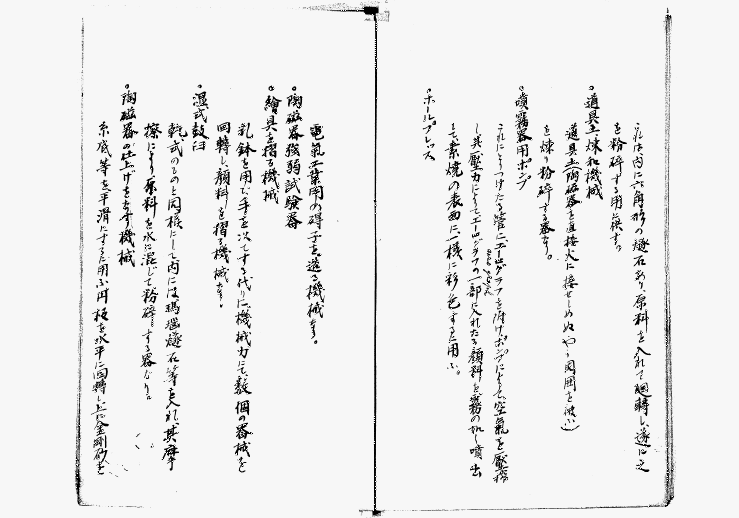 これは内に六角形の燧石あり、原料を入れて廻轉し、遂に之
を粉碎する用に供す。
○道具土煉和機械
道具土(陶磁器を直接火に接せしめぬやう周囲を被ふ)
を煉り粉碎する器なり。
○噴霧器用ポンプ
これによりつけたる管にエーログラフを附けポンプによりて空氣を壓搾
し其壓力によりてエーログラフの一部に入れたる顔料を霧の如く噴出
して素焼の表面に一様に彩色するに用ふ。
○ボールプレッス
電氣工業用の碍子を造る機械なり。
○陶磁器強弱試験器
○繪具を摺る機械
乳鉢を用ひ手を以てする代りに、機械力にて數個の器械を
回轉し、顔料を摺る機械なり。
○濕式鼓臼
乾式のものと同様にして内には瑪瑙燧石等を入れ、其摩
擦により原料を水に混じて粉碎する器なり。
○陶磁器の仕上げをなす機械
糸底等を平滑にするに用ふ円板を水平に回轉し上に金剛砂を